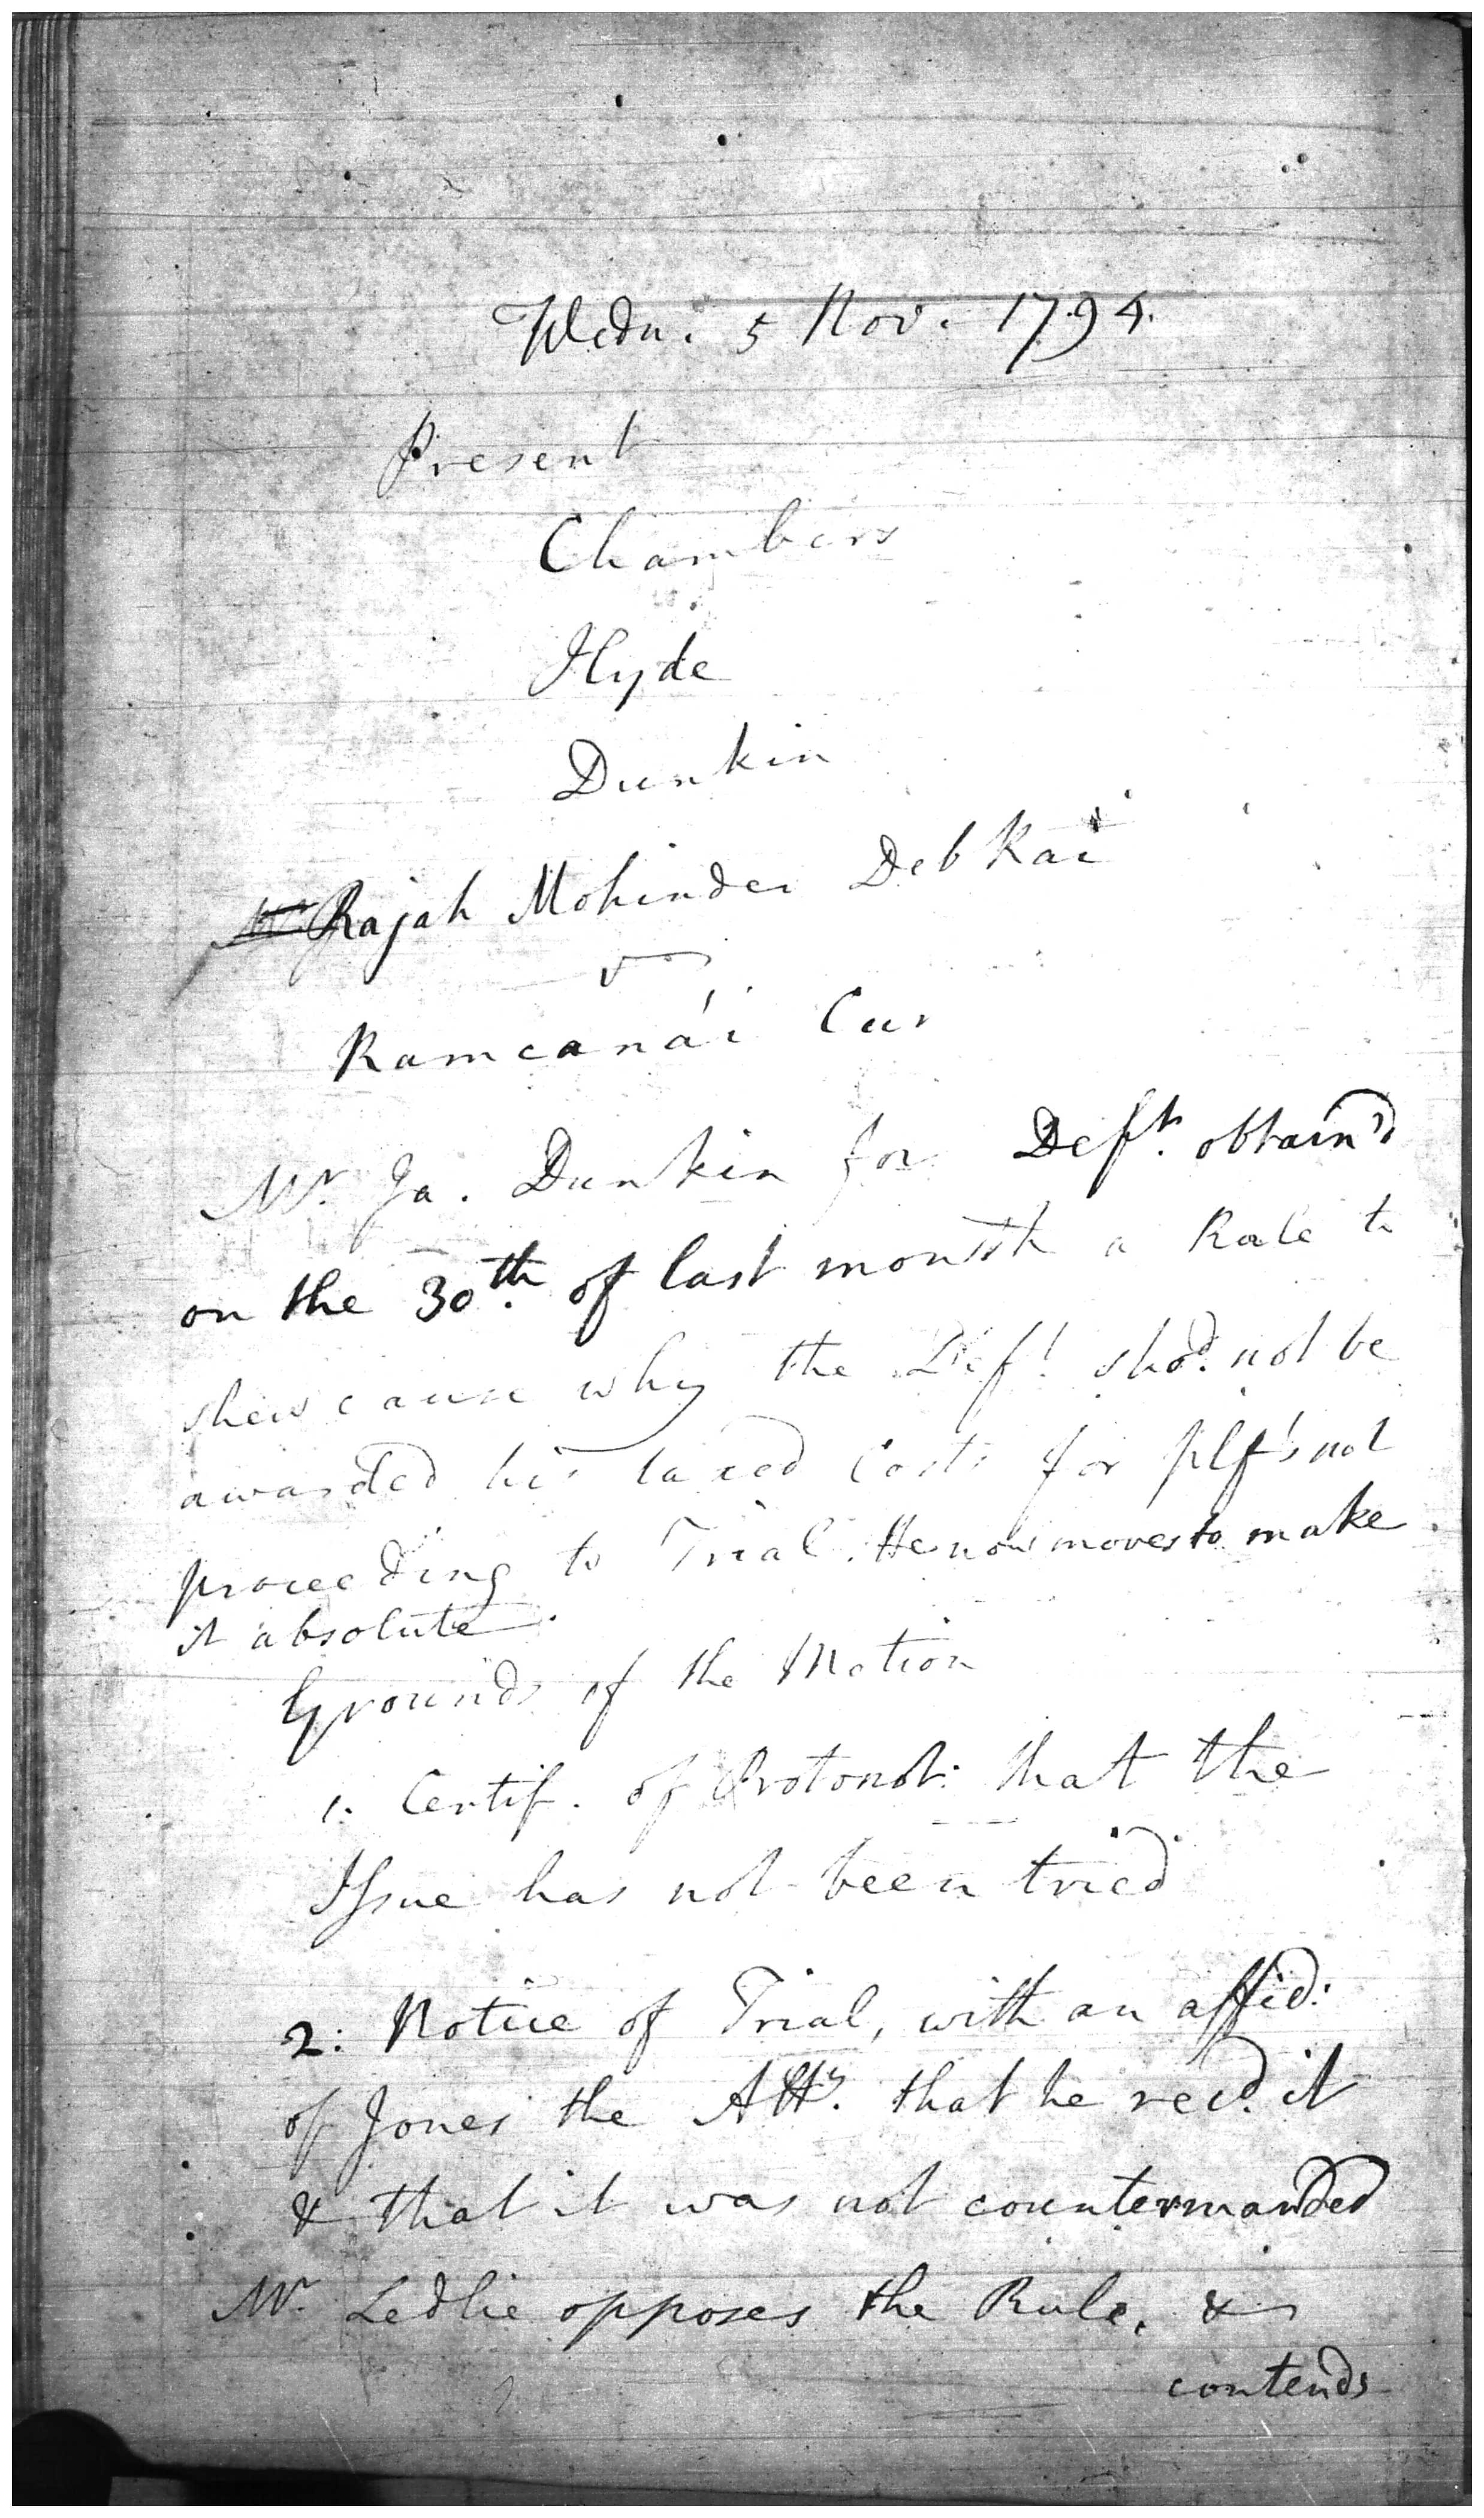 Wedn. 5 Nov. 1794.
Present
Chambers
Hyde
Dunkin
Rajah Mohinder Deb Rai
v
Ramcanái Cur
Mr. Ja. Dunkin for Deft. obtain'd
on the 30th. of last month a Rule to
shew cause why the Deft. shod. not be
awarded his taxed Costs for plf's not
proceeding to Trial. He now moves to make
it absolute.
Grounds of the Motion
1. Certif. of Protonot: that the
Issue has not been tried
2: Notice of Trial, with an affid:
of Jones the Atty. that he recd. it
& that it was not countermanded
Mr. Ledlie opposes the Rule, &
contends